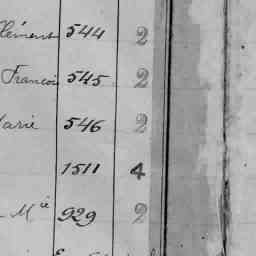 Clément 544 2
François 545 2
Marie 546 2
1511 4
Mie 929 2